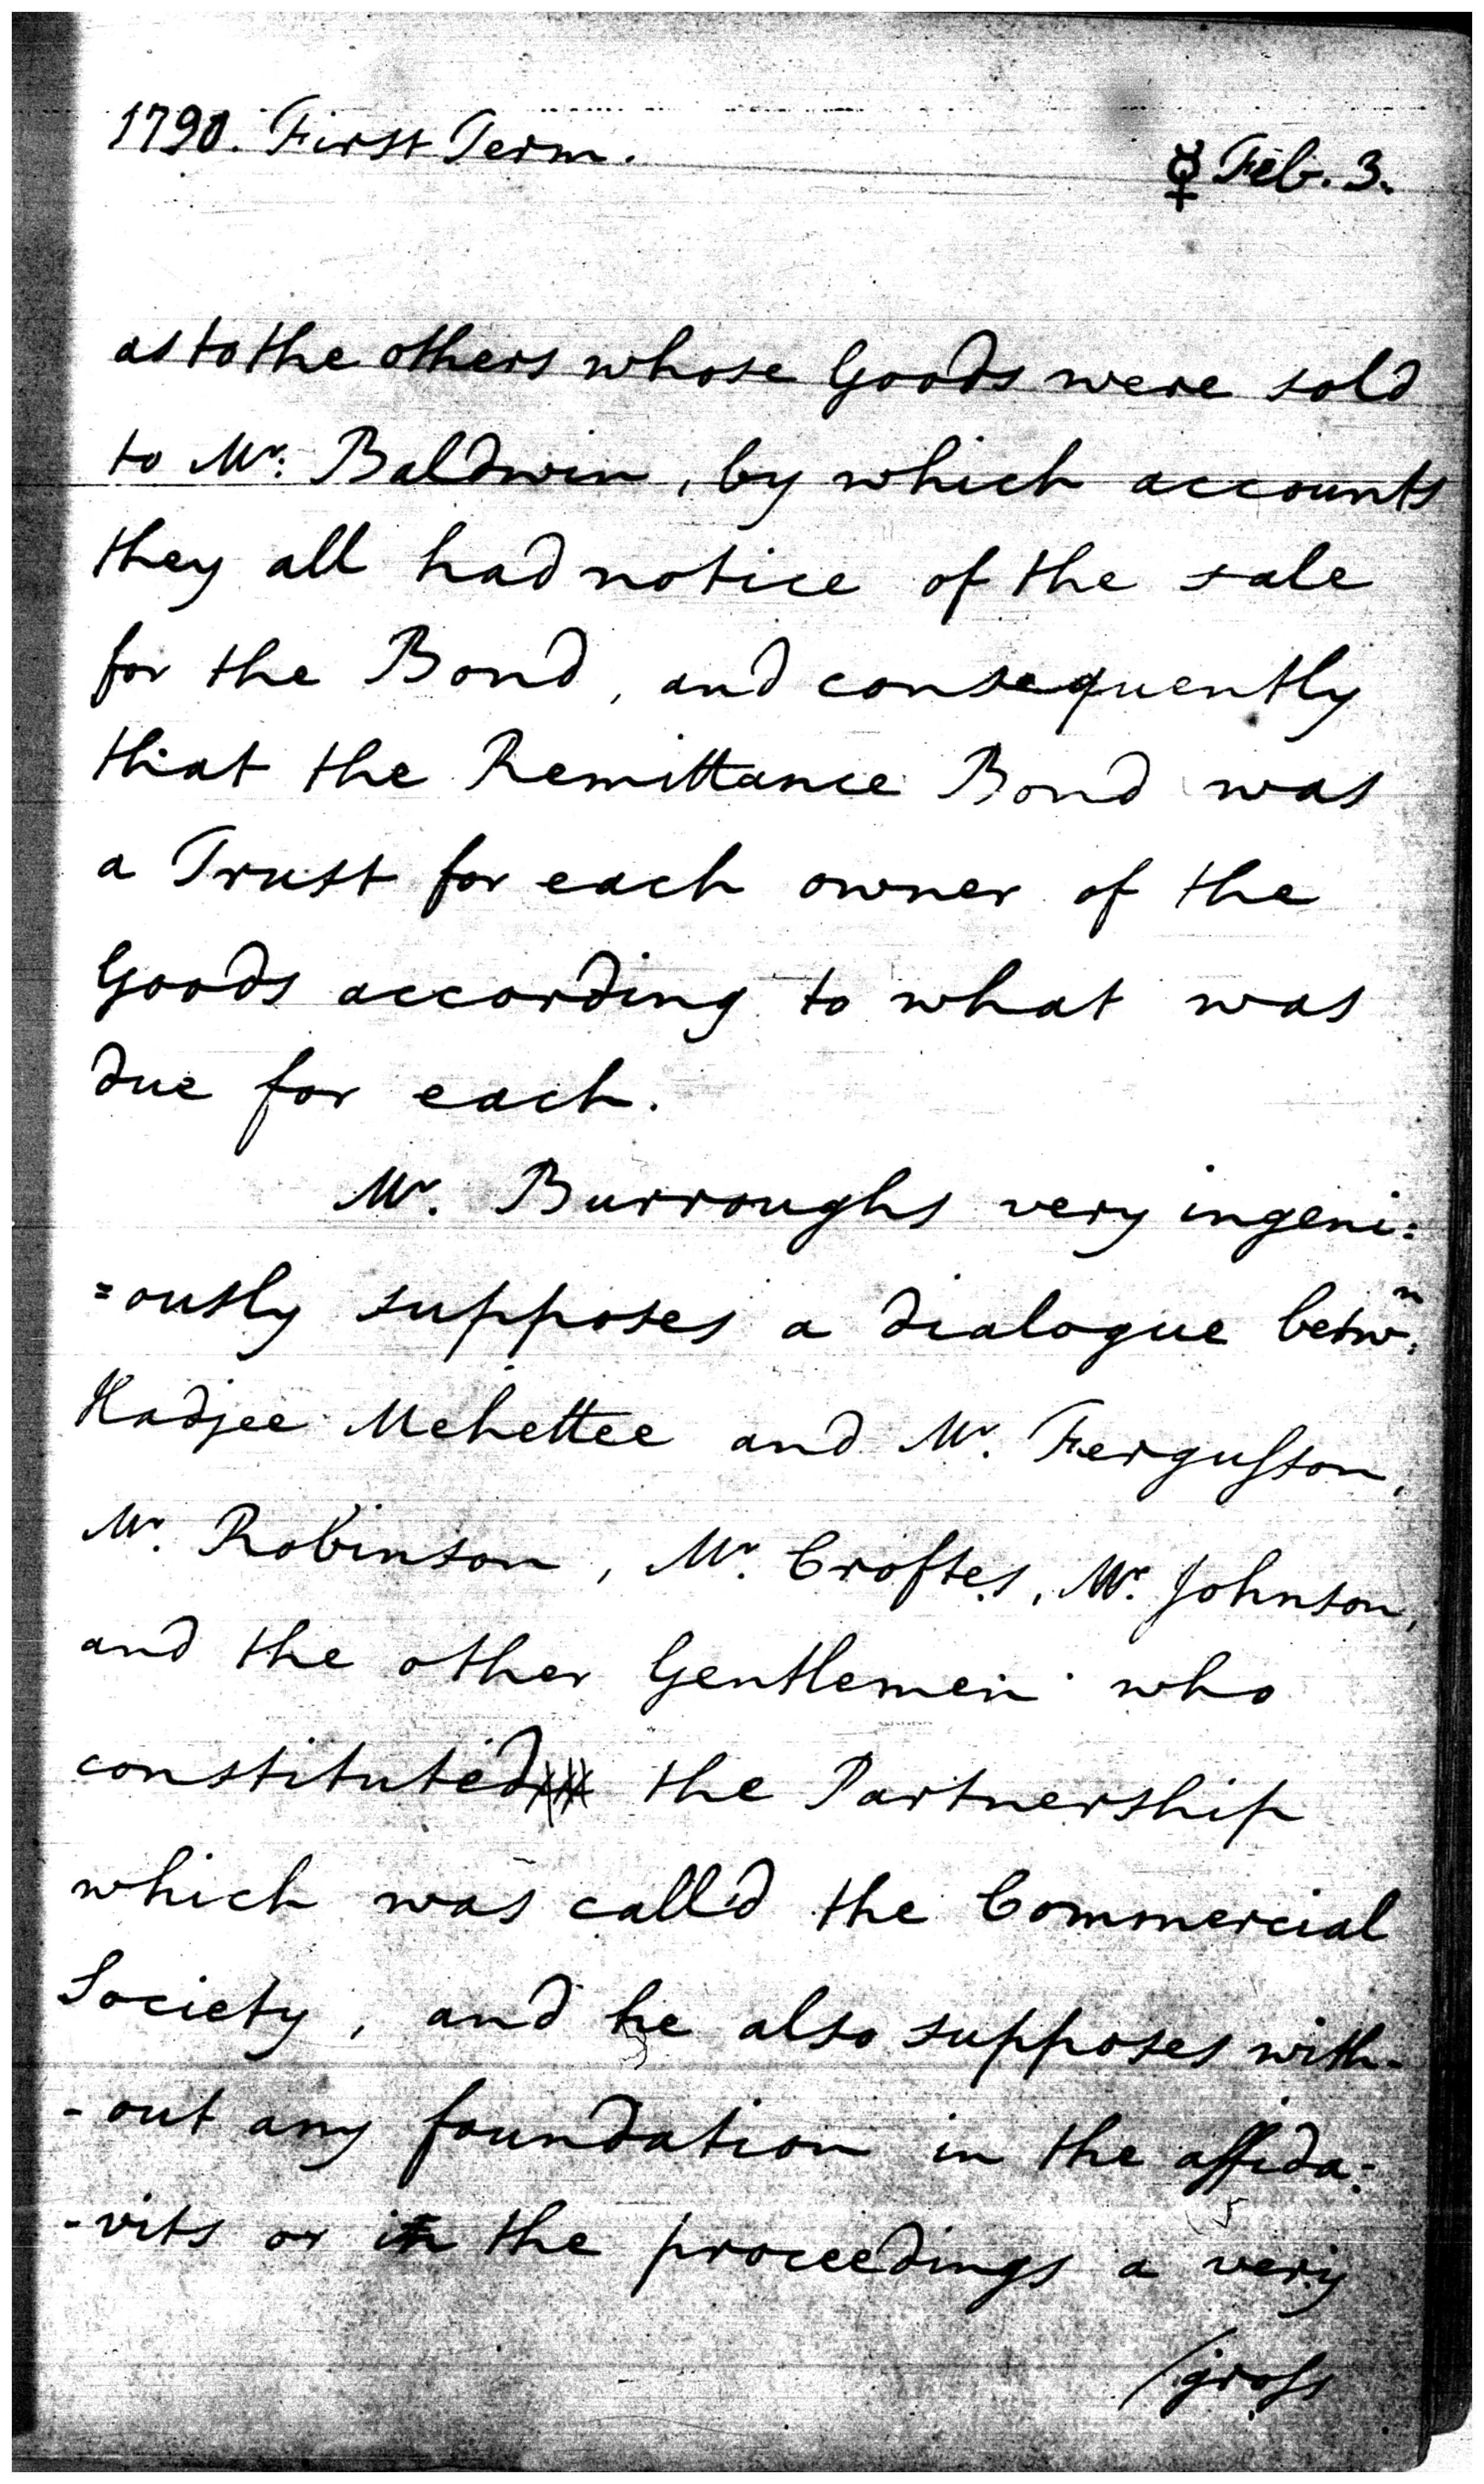 1790. First Term.
☿ Feb. 3.
as to the others whose Goods were sold
to Mr. Baldwin, by which accounts
they all had notice of the sale
for the Bond, and consequently
that the Remittance Bond was
a Trust for each owner of the
Goods according to what was
due for each.
Mr. Burroughs very ingeni:
=ously supposes a dialogue betwn.
Hadjee Mehettee and Mr. Fergusson,
Mr. Robinson, Mr. Croftes, Mr. Johnson,
and the other Gentlemen who
constituted the Partnership
which was call'd the Commercial
Society, and he also supposes with-
-out any foundation in the affida-
-vits or in the proceedings a very
/gross